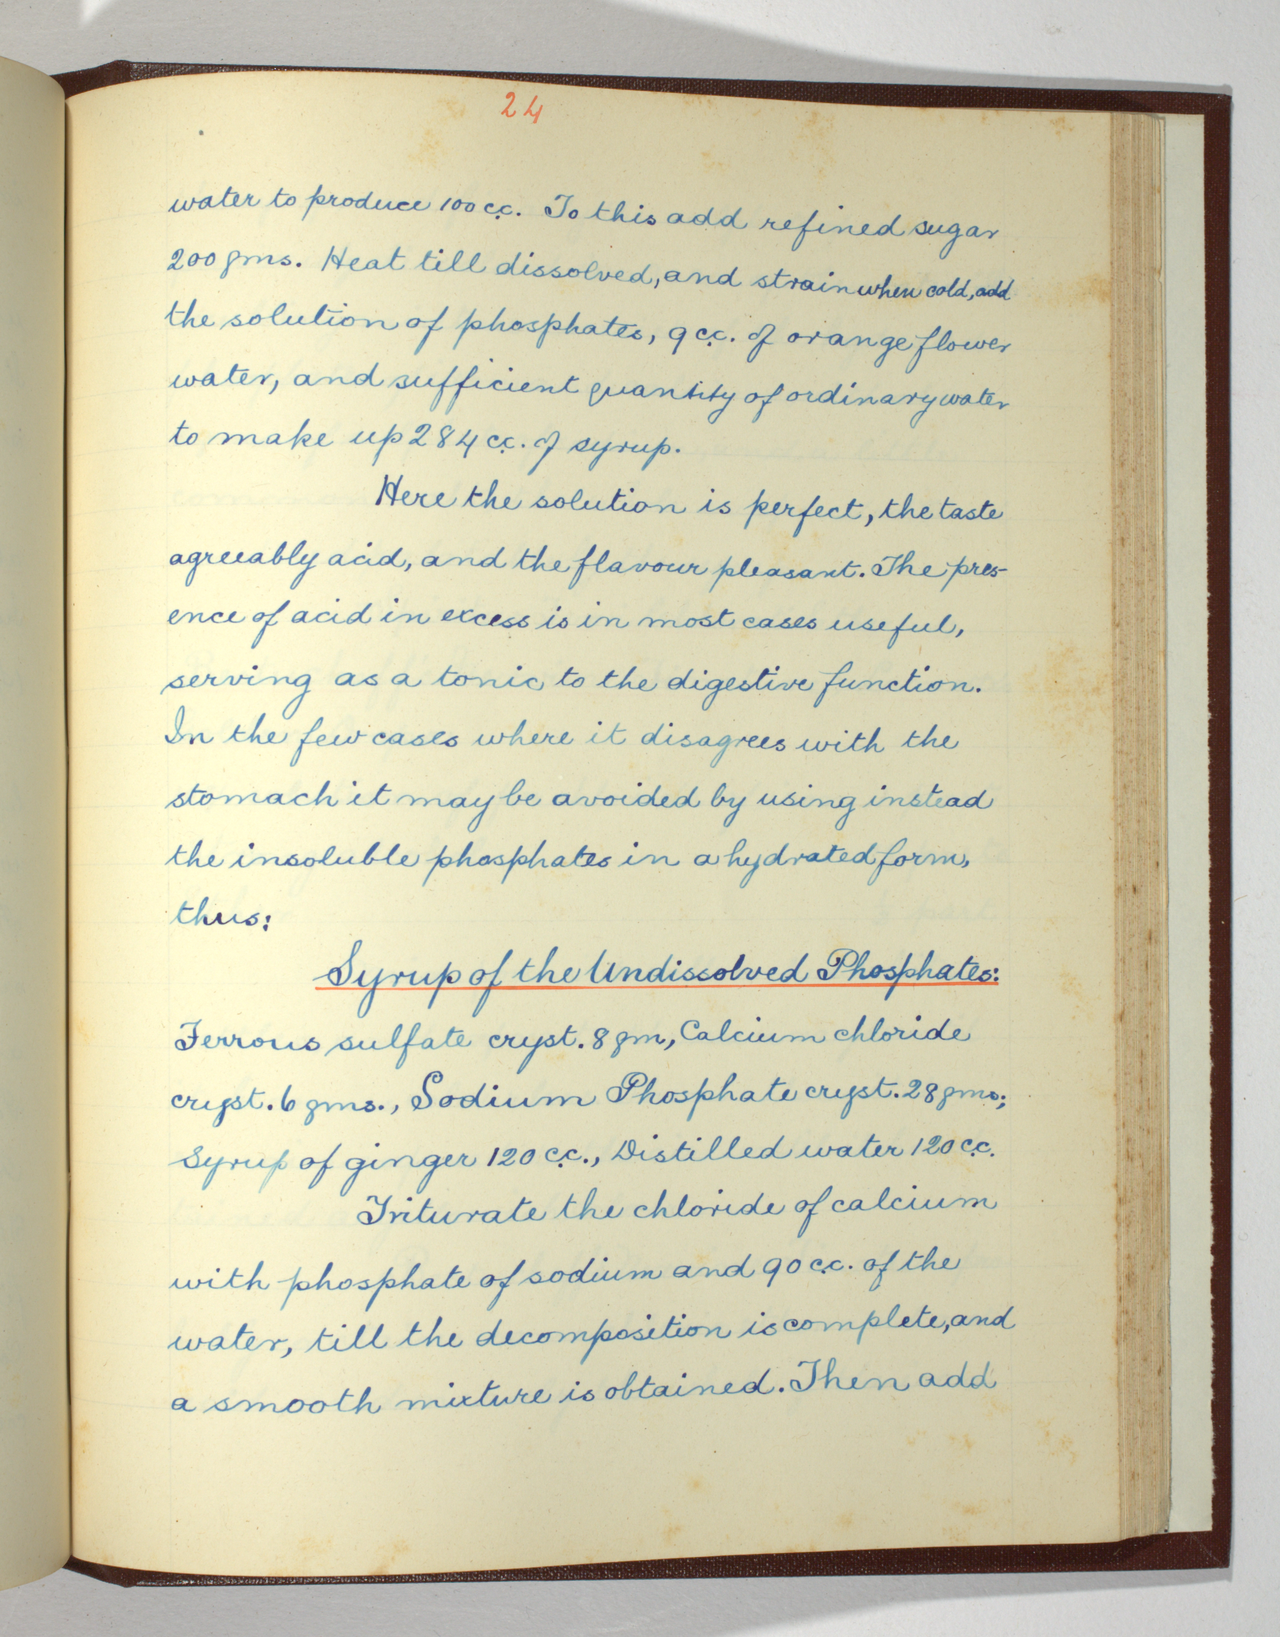 24
water to produce 100 c.c. To this add refined sugar
200 gms. Heat till dissolved, and strain when cold, add
the solution of phosphates, 9 c.c. of orange flower
water, and sufficient quantity of ordinary water
to make up 284 c.c. of syrup.
Here the solution is perfect, the taste
agreeably acid, and the flavour pleasant. The pres-
ence of acid in excess is in most cases useful,
serving as a tonic to the digestive function.
In the few cases where it disagrees with the
stomach it may be avoided by using instead
the insoluble phosphates in a hydrated form,
thus:
Syrup of the Undissolved Phosphates:
Ferrous sulfate cryst. 8 gm, Calcium chloride
cryst. 6 gms., Sodium Phosphate cryst. 28 gms;
Syrup of ginger 120 c.c., Distilled water 120 c.c.
Triturate the chloride of calcium
with phosphate of sodium and 90 c.c. of the
water, till the decomposition is complete, and
a smooth mixture is obtained. Then add